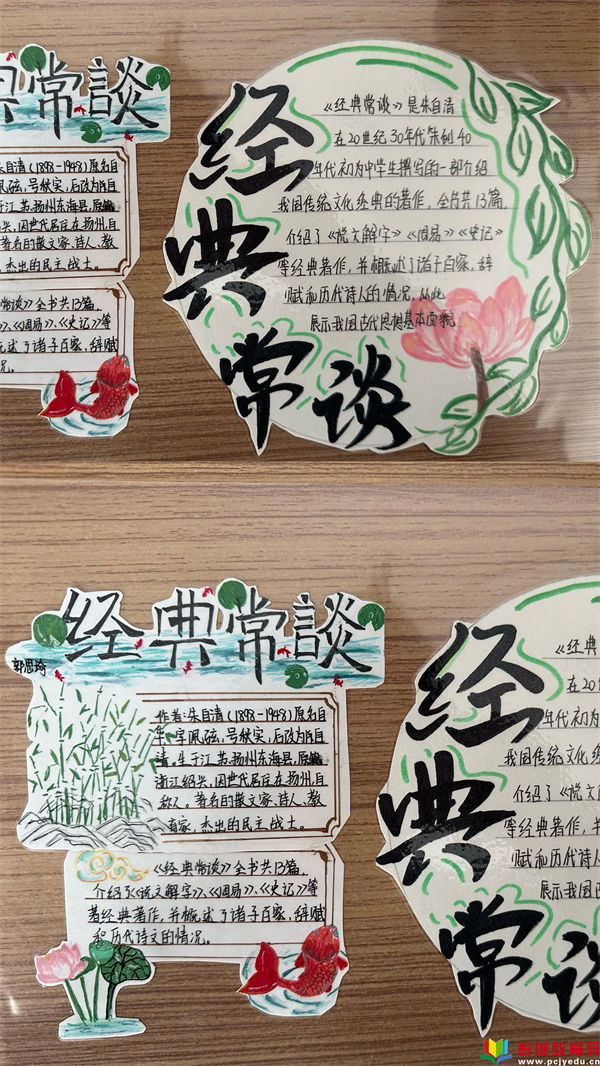 典常談
朱自清(1898-1948)原名自
佩弦,号秋实,后改为自
于江苏扬州东海县,原籍
兴,因世代居住在扬州,自
著名的散文家、诗人、教
杰出的民主战士。
常谈》全书共13篇,
》、《周易》、《史记》等
述了诸子百家,辞赋
况。
经典常谈
《经典常谈》是朱自清
在20世纪30年代末到40
年代初为中学生撰写的一部介绍
我国传统文化经典的著作,全书共13篇,
介绍了《说文解字》《周易》《史记》
等经典著作,并概述了诸子百家,辞
赋和历代诗人的情况,从此
展示我国古代思想基本面貌
经典常談
郭思琦
作者:朱自清(1898-1948)原名自
华,字佩弦,号秋实,后改为自
清,生于江苏扬州东海县,原籍
浙江绍兴,因世代居住在扬州,自
称人。著名的散文家、诗人、教
育家,杰出的民主战士。
《经典常谈》全书共13篇,
介绍了《说文解字》、《周易》、《史记》等
著经典著作,并概述了诸子百家,辞赋
和历代诗文的情况。
经典常谈
《经典
在20世
年代初为
我国传统文化经
介绍了《说文
等经典著作,并
赋和历代诗
展示我国古
彭城教育网
www.pcjyedu.cn